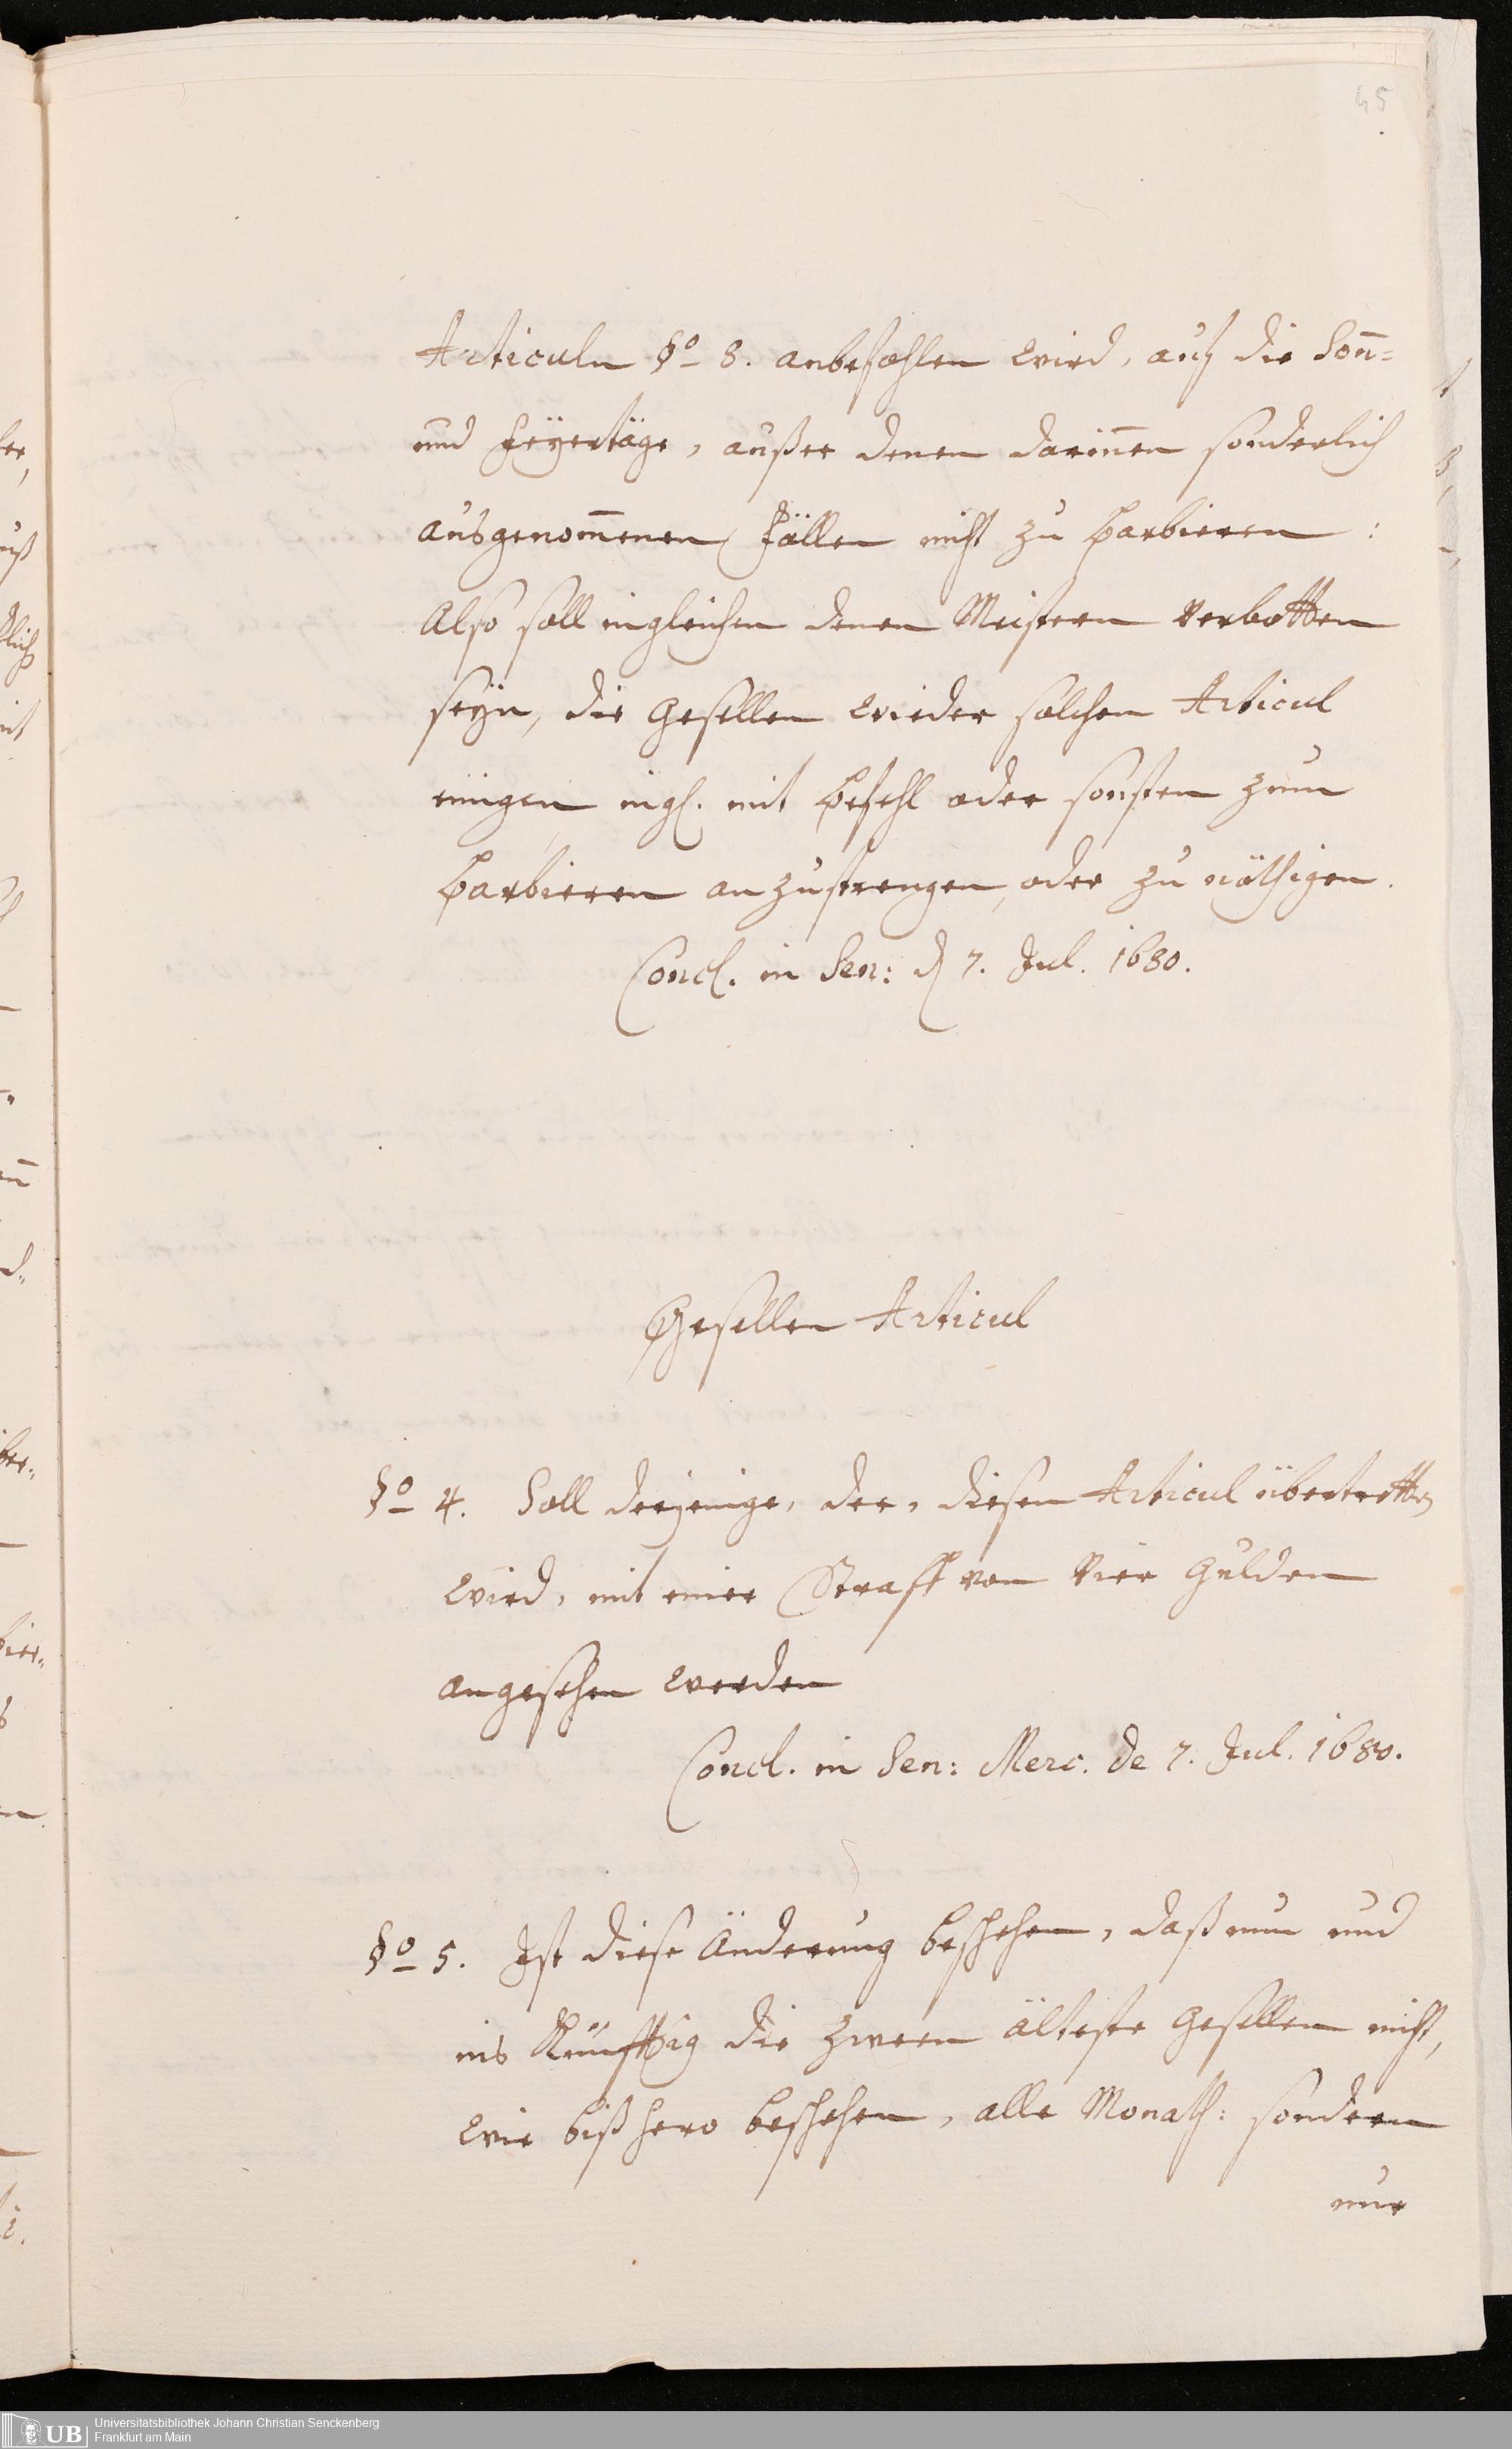 45
Articuln §o 8. anbefohlen wird, auf die Soñ=
und Feyertäge, außer denen dariñen sonderlich
ausgenom̃enen Fällen nicht zu barbieren:
Also soll ingleichen denen Meistern Verbotten
seyn, die Gesellen wieder solchen Articul
einigen mit befehl oder sonsten zum
barbieren anzustrengen, oder zu nöthigen.
Concl. in Sen: d 7. Jul. 1680.
Gesellen Articul
§o 4. Soll derjenige, der, diesen Articul übertretten
wird, mit einer Straff von Vier Gulden
angesehen werden
Concl. in Sen: Merc. de 7. Jul. 1680.
§o 5. Ist diese Änderung beschehen, daß nun und
ins Künfftig die zween älteste Gesellen nicht,
wie bißhero beschehen, alle Monath: sondern
nur
UB
Universitätsbibliothek Johann Christian Senckenberg
Frankfurt am Main